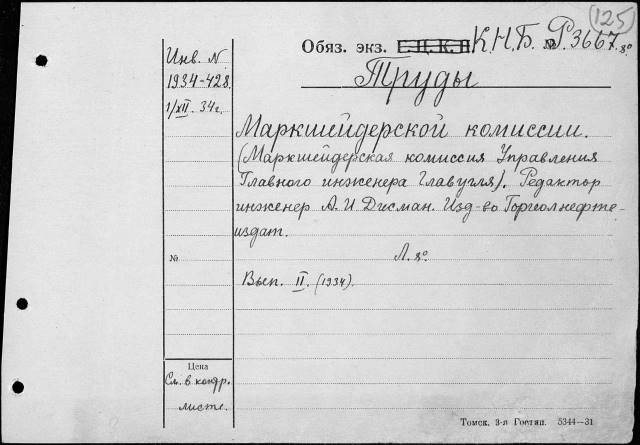 125
Обяз. экз. Е.Ц.К.П К.Н.Б. № Р.3667. 8°
Инв. N
1934-428.
1/XII. 34г.
Труды
Маркшейдерской комиссии.
(Маркшейдерская комиссия Управления
Главного инженера Главугля). Редактор
инженер А. И Дисман. Изд-во Горгеолнефте-
издат.
№
Л. 8°.
Вып. II. (1934).
Цена
См. в контр.
листе.
Томск. 3-я Гостип. 5344—31